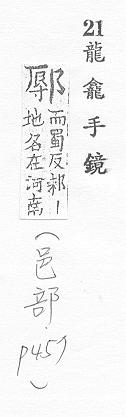 21 龍龕手鏡
鄏 而蜀反郟丨
地名在河南
(邑部 p457)